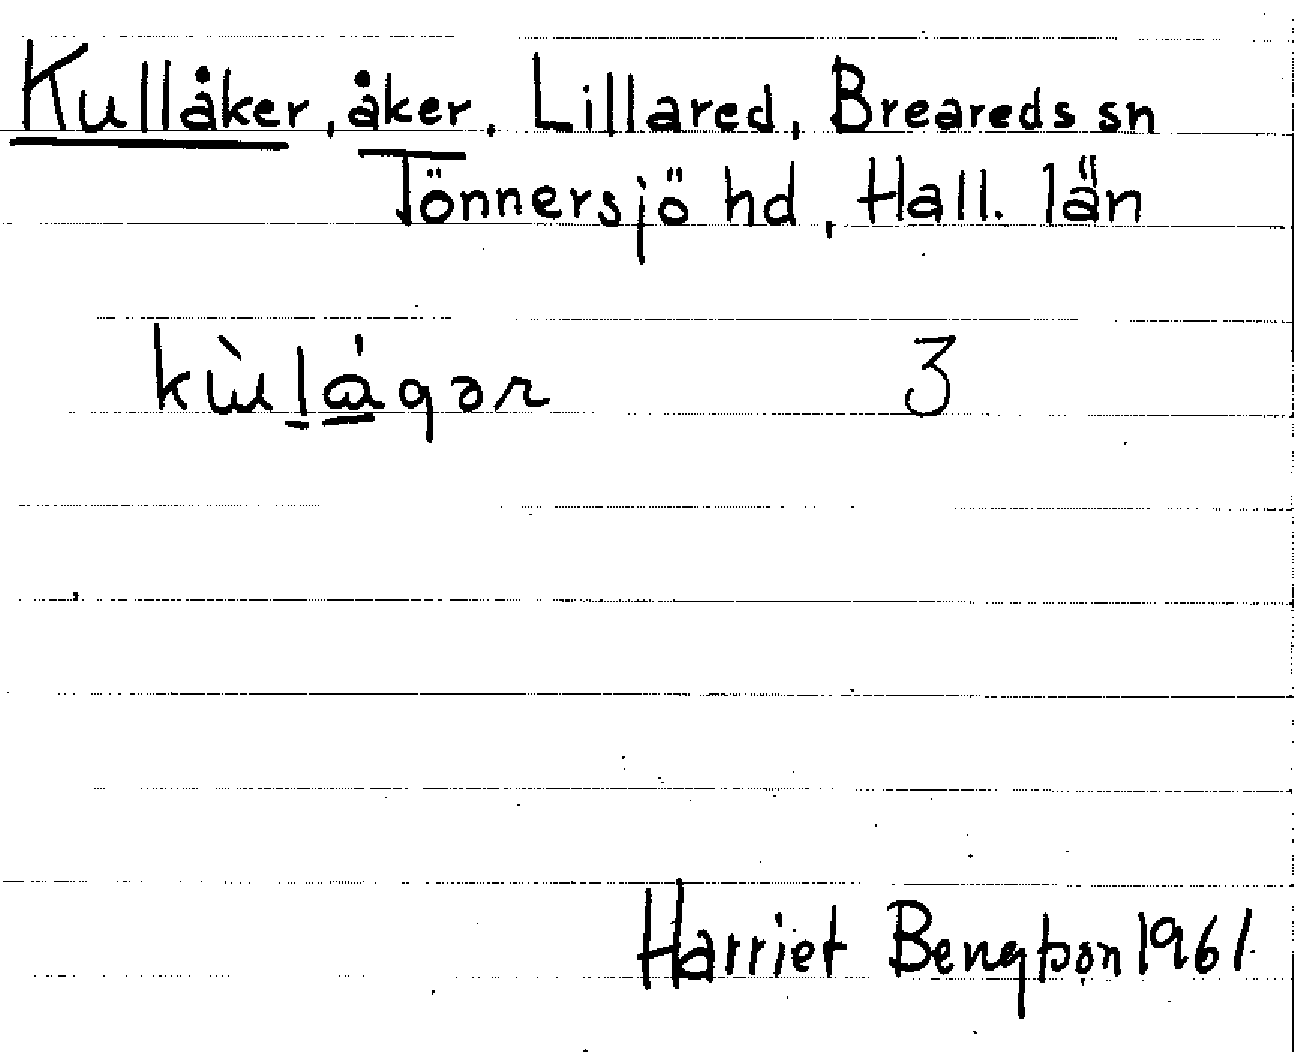 Kullåker, åker, Lillared, Breareds sn
Tönnersjö hd, Hall. län
kùlågər 3
Harriet Bengtson 1961